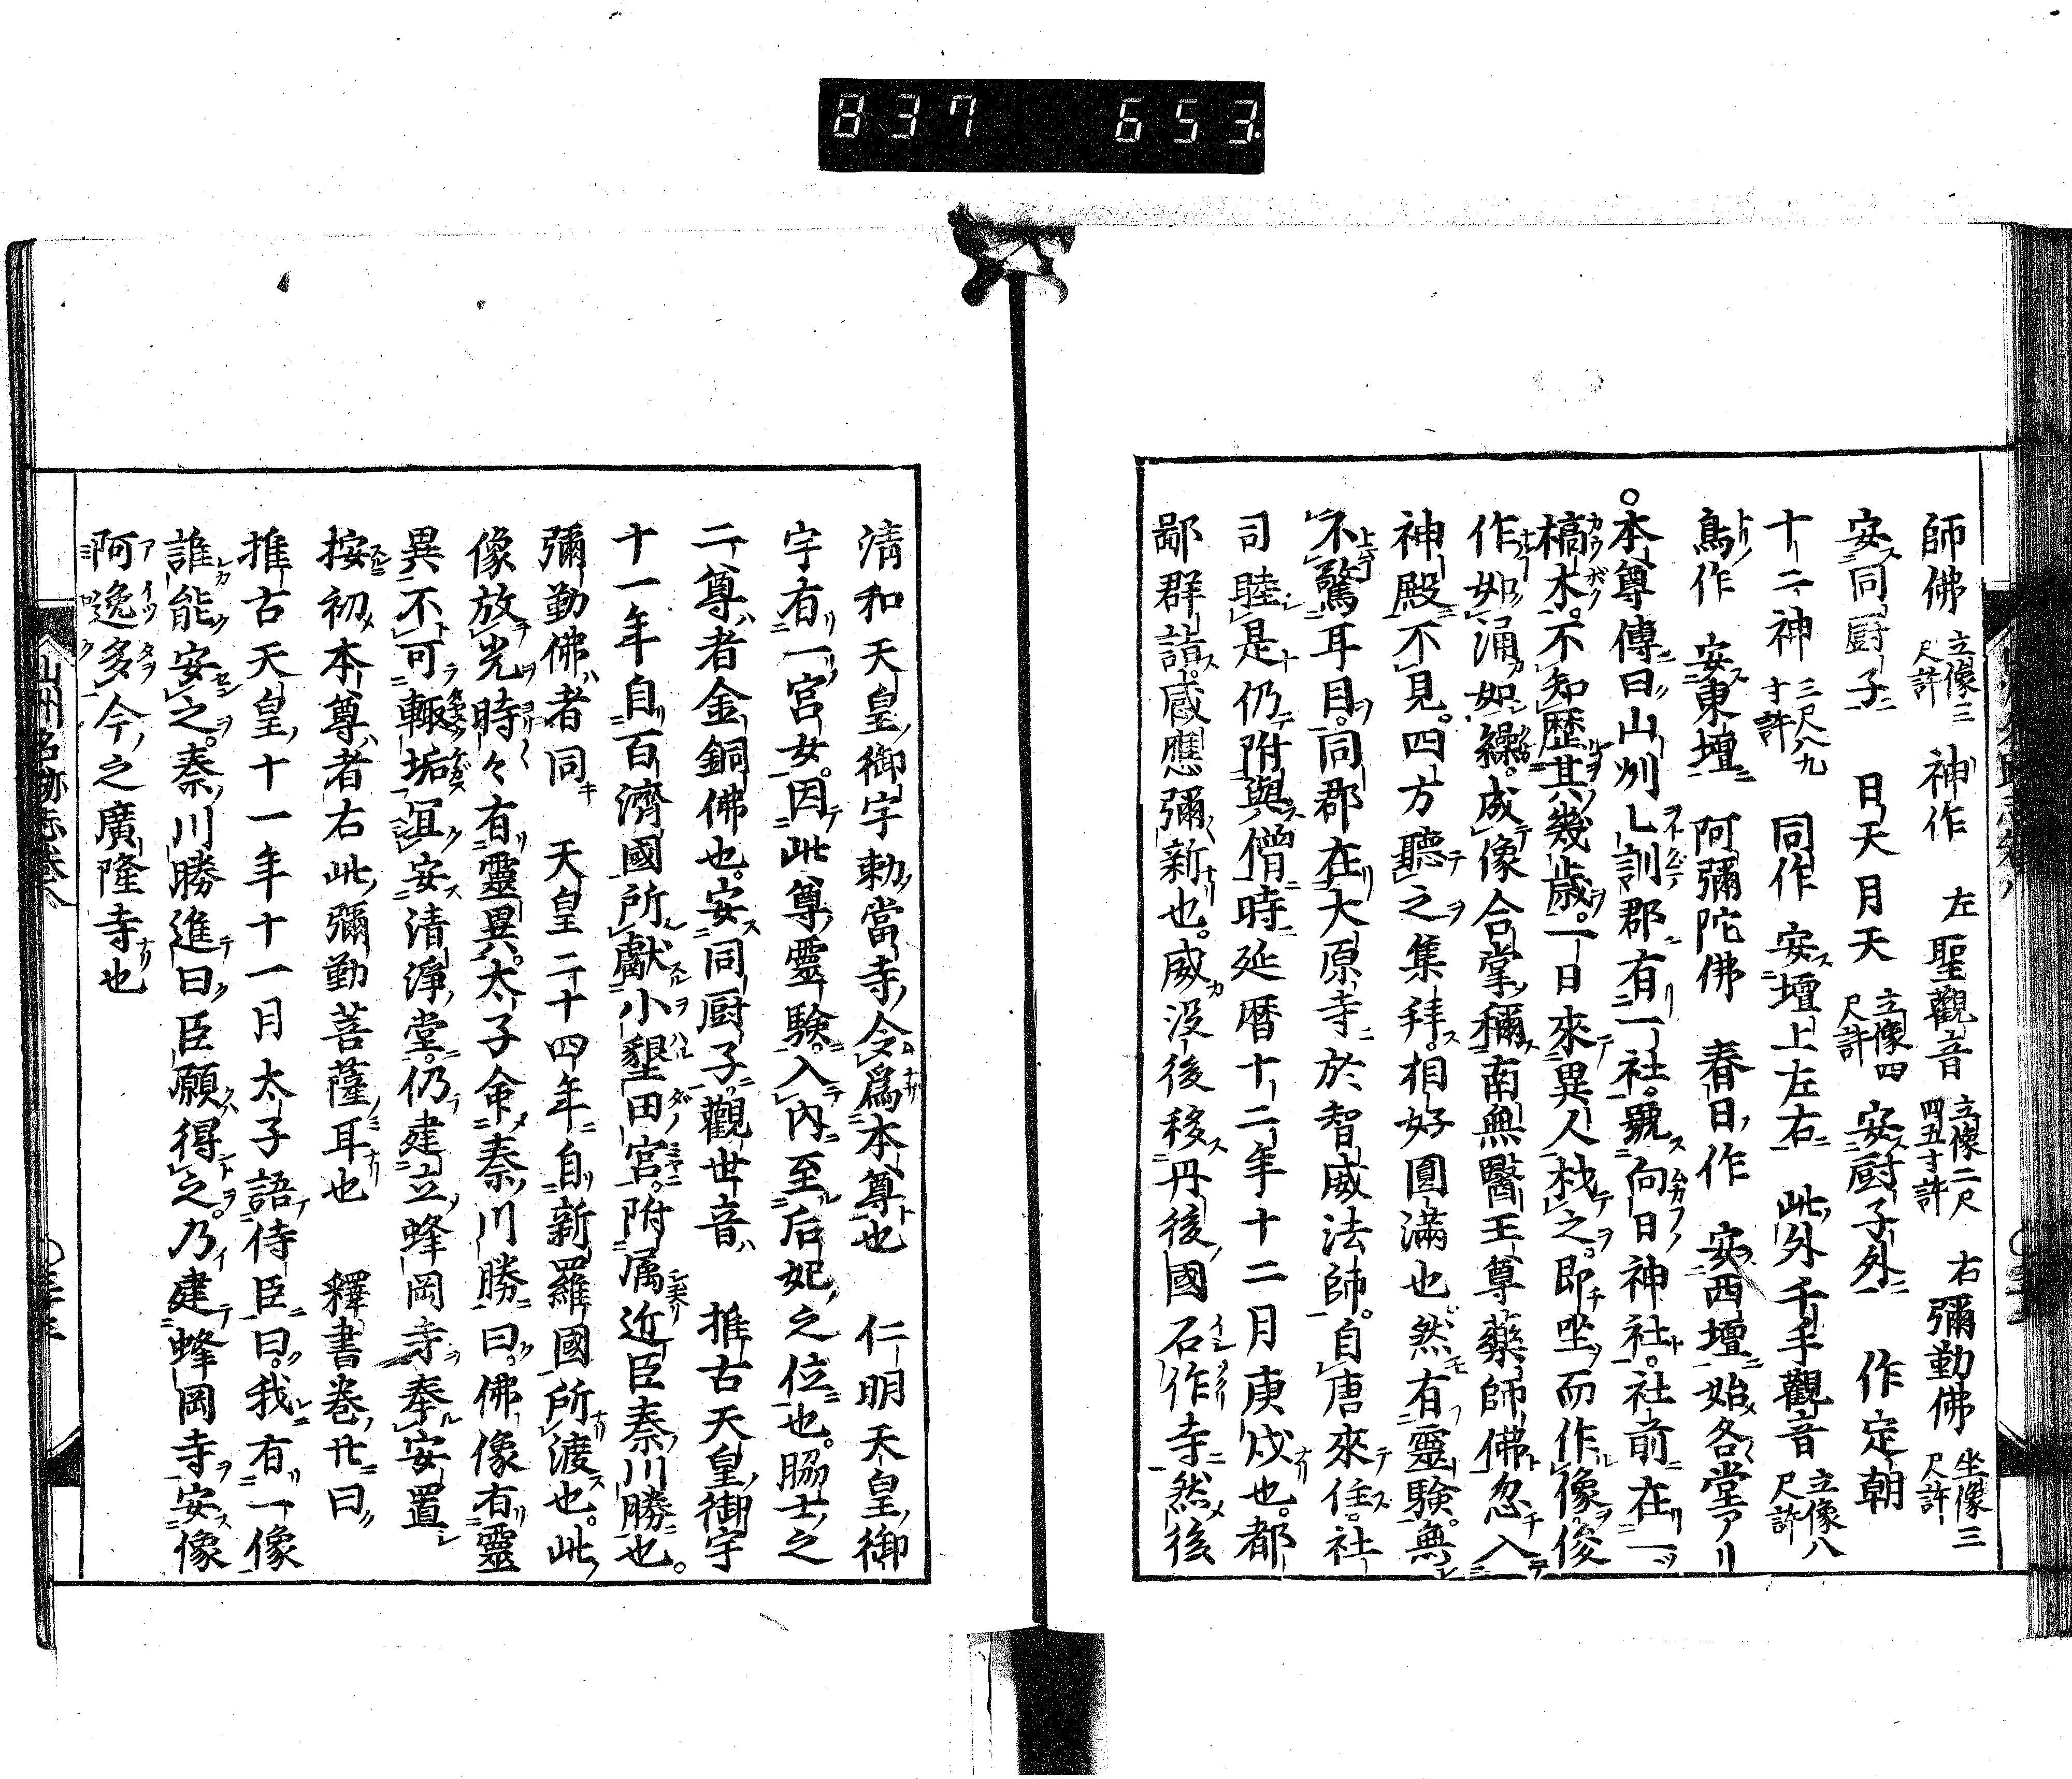 837 653
師佛 立像三尺許 神作 左聖觀音 立像二尺四五寸許 右彌勤佛 坐像三尺許
安同厨子 日天月天 立像四尺許 安厨子外 作定朝
十二神 三尺八九寸許 同作 安壇上左右 此外千手觀音 立像八尺許
鳥作 安東壇 阿彌陀佛 春日作 安西壇始各堂アリ
○本尊傳曰山州乙訓郡有一社。號向日神社。社前在一
槁木。不知歴其幾歳。一日來異人林之即坐而作像俊
作如涌如繰。成像合掌稱南無醫王尊藥師佛忽入
神殿不見。四方聽之集拜。相好圓滿也然有靈験。無
不驚耳目。同郡在大原寺於智威法師。自唐來住。社
司睦是仍附與僧時延暦十二年十二月庚戌也。都
鄙群詣。感應彌新也。威没後移丹後國石作寺然後
清和天皇御宇勅當寺令爲本尊也 仁明天皇御
宇有一宮女。因此尊靈験。入内至后妃之位也。脇士之
二尊者金銅佛也。安同厨子。觀世音 推古天皇御宇
十一年自百濟國所獻小墾田宮。附属近臣秦川勝也。
彌勤佛者同 天皇二十四年自新羅國所渡也。此
像放光時々有靈異。太子命秦川勝曰。佛像有靈
異不可輙垢冝安清淨堂。仍建立蜂岡寺奉安置
按初本尊者右此彌勤菩薩耳也 釋書巻廿曰
推古天皇十一年十一月太子語侍臣曰。我有一像
誰能安之。秦川勝進曰臣願得之。乃建蜂岡寺安像
阿逸多今之廣隆寺也
山州名跡志巻八